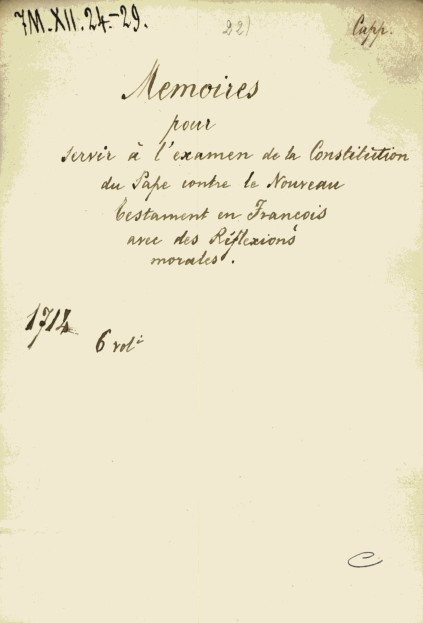 7M.XII.24.-29.
221
Capp.
Memoires
pour
servir à l'examen de la Constitution
du Pape contre le Nouveau
testament en François
avec des Réflexions
morales.
1714
6 vol.
C